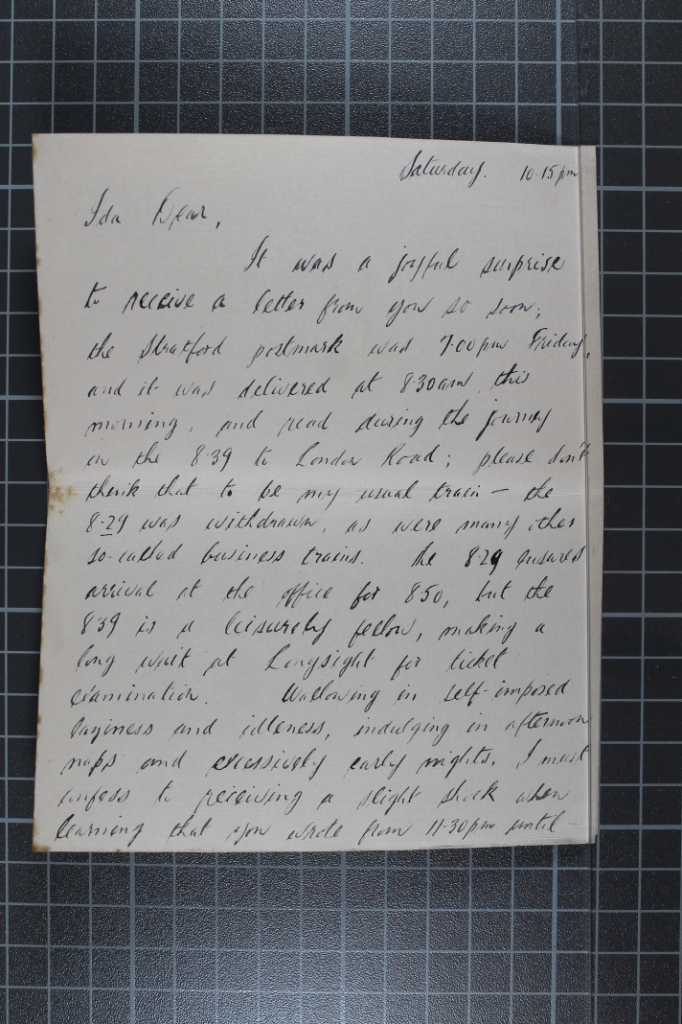 Saturday. 10.15pm
Ida Dear,
It was a joyful surprise
to receive a letter from you so soon;
the Stratford postmark was 7.00pm Friday,
and it was delivered at 8.30am this
morning, and read during the journey
on the 8.39 to London Road; please don't
think that to be my usual train - the
8.29 was withdrawn, as were many other
so-called business trains. The 8.29 ensured
arrival at the office for 8.50, but the
8.39 is a leisurely fellow, making a
long wait at Longsight for ticket
examination. Wallowing in self-imposed
laziness and idleness, indulging in afternoon
naps and excessively early nights, I must
confess to receiving a slight shock when
learning that you wrote from 11.30pm until